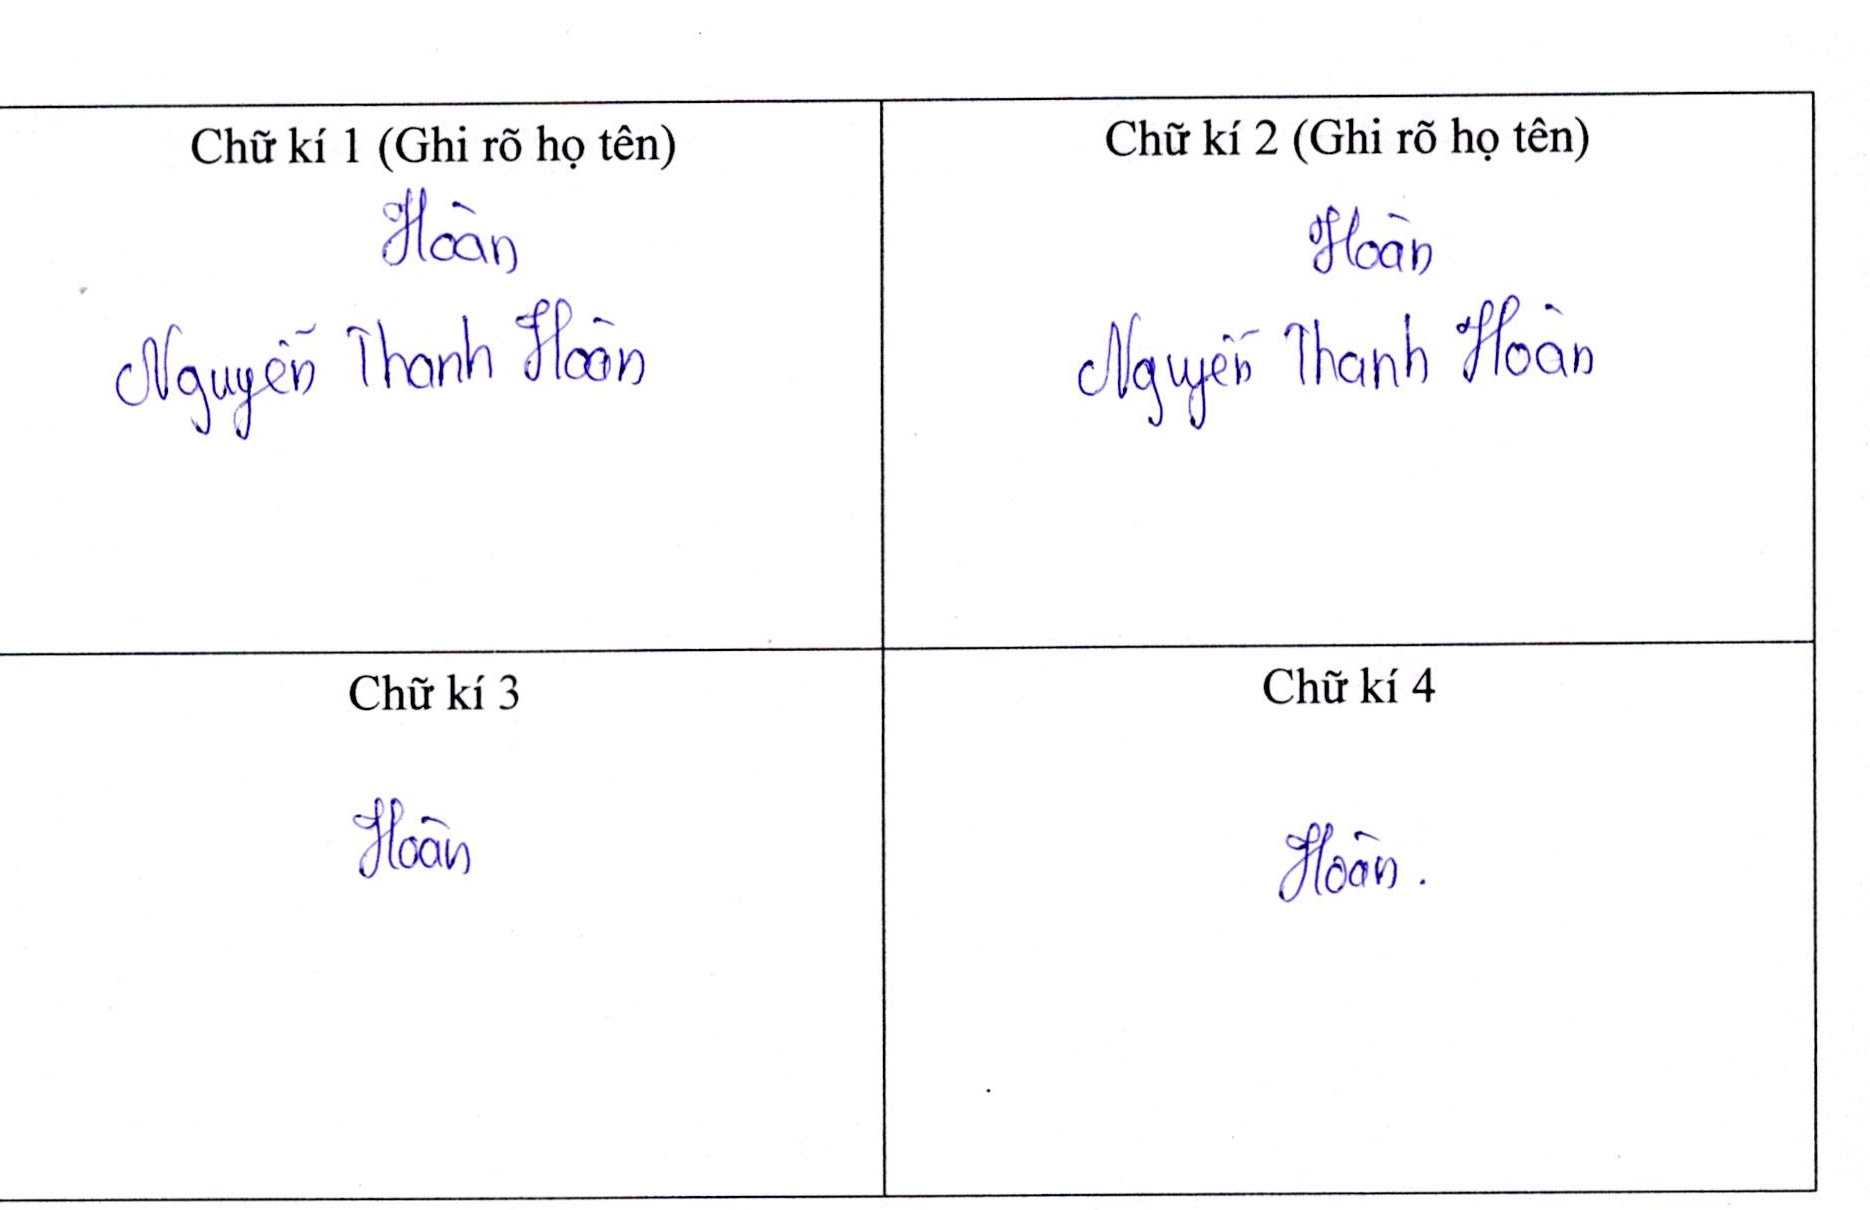 Chữ kí 1 (Ghi rõ họ tên)
Hoàn
Nguyễn Thanh Hoàn
Chữ kí 2 (Ghi rõ họ tên)
Hoàn
Nguyễn Thanh Hoàn
Chữ kí 3
Hoàn
Chữ kí 4
Hoàn.